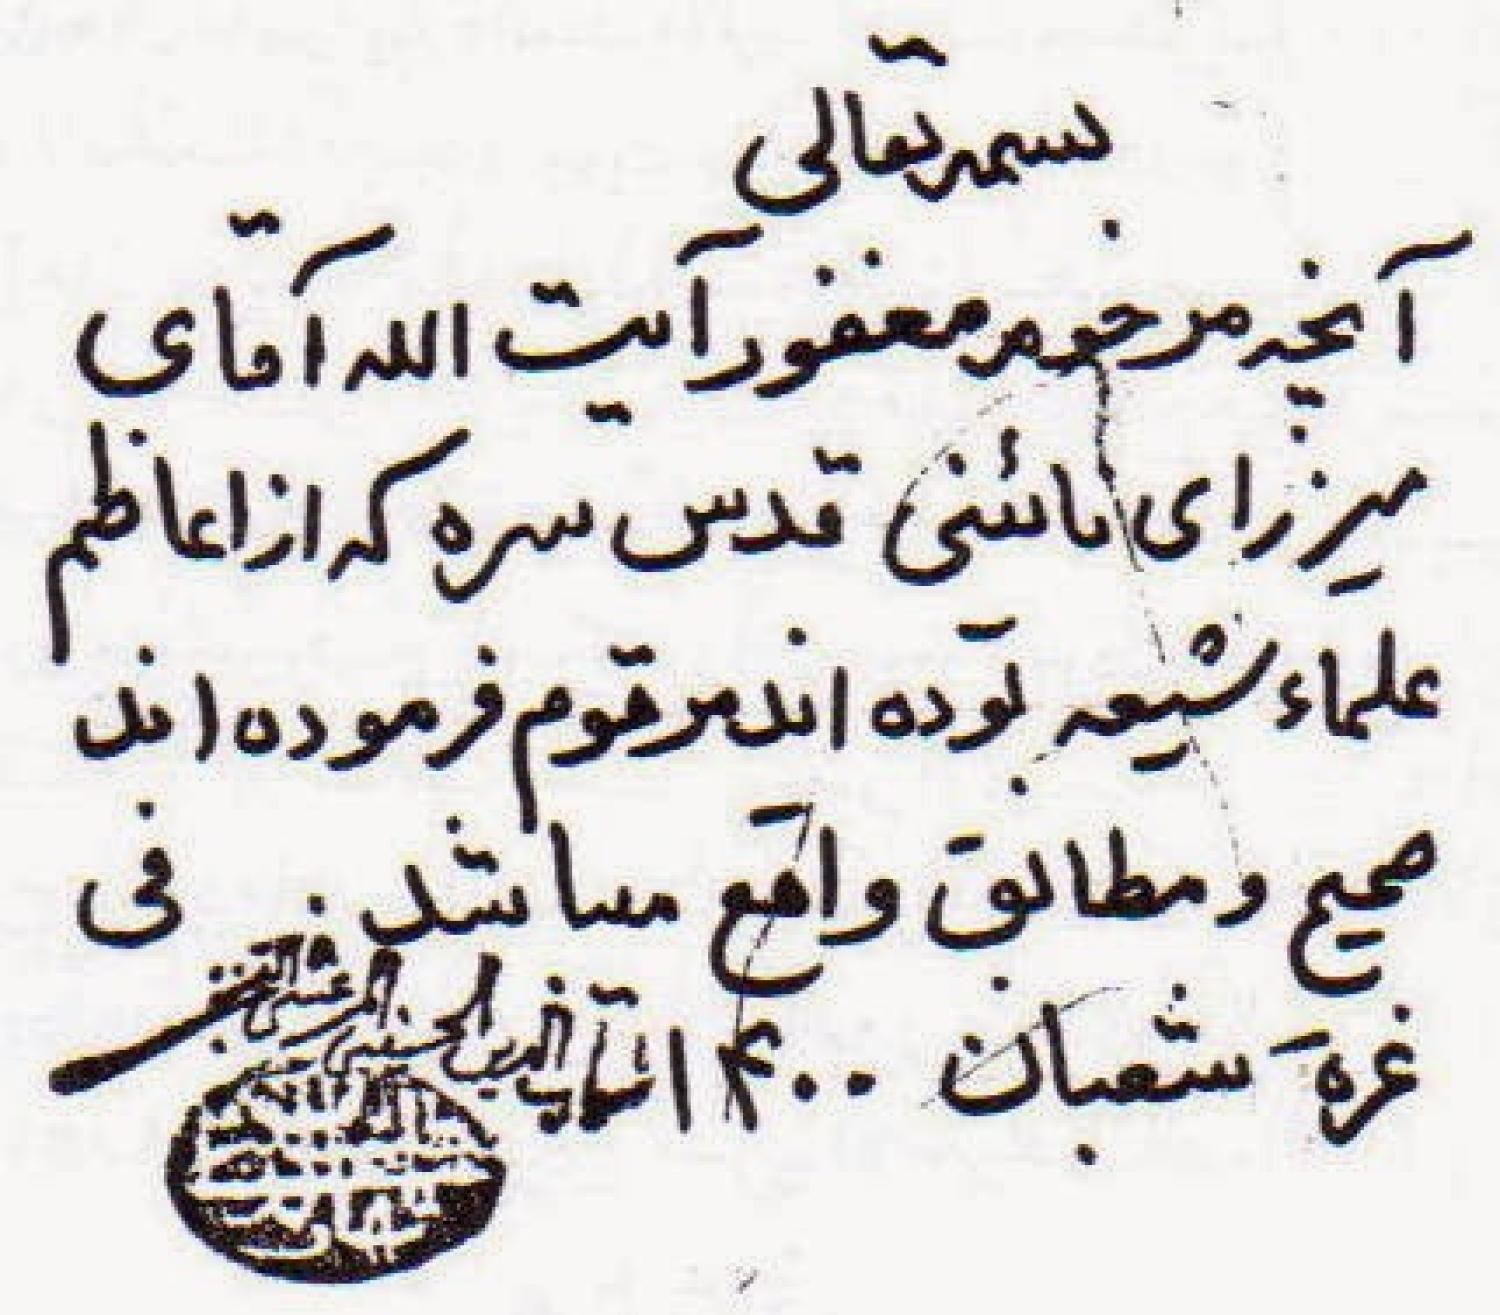 بسمه تعالی
آنچه مرحوم مغفور آیت الله آقای
میرزای نائنی قدس سره که از اعاظم
علماء شیعه بوده اند مرقوم فرموده اند
صحیح و مطابق واقع میباشد. فی
غرهٔ شعبان ۱۴۰۰
شهاب الدین الحسینی المرعشی النجفی